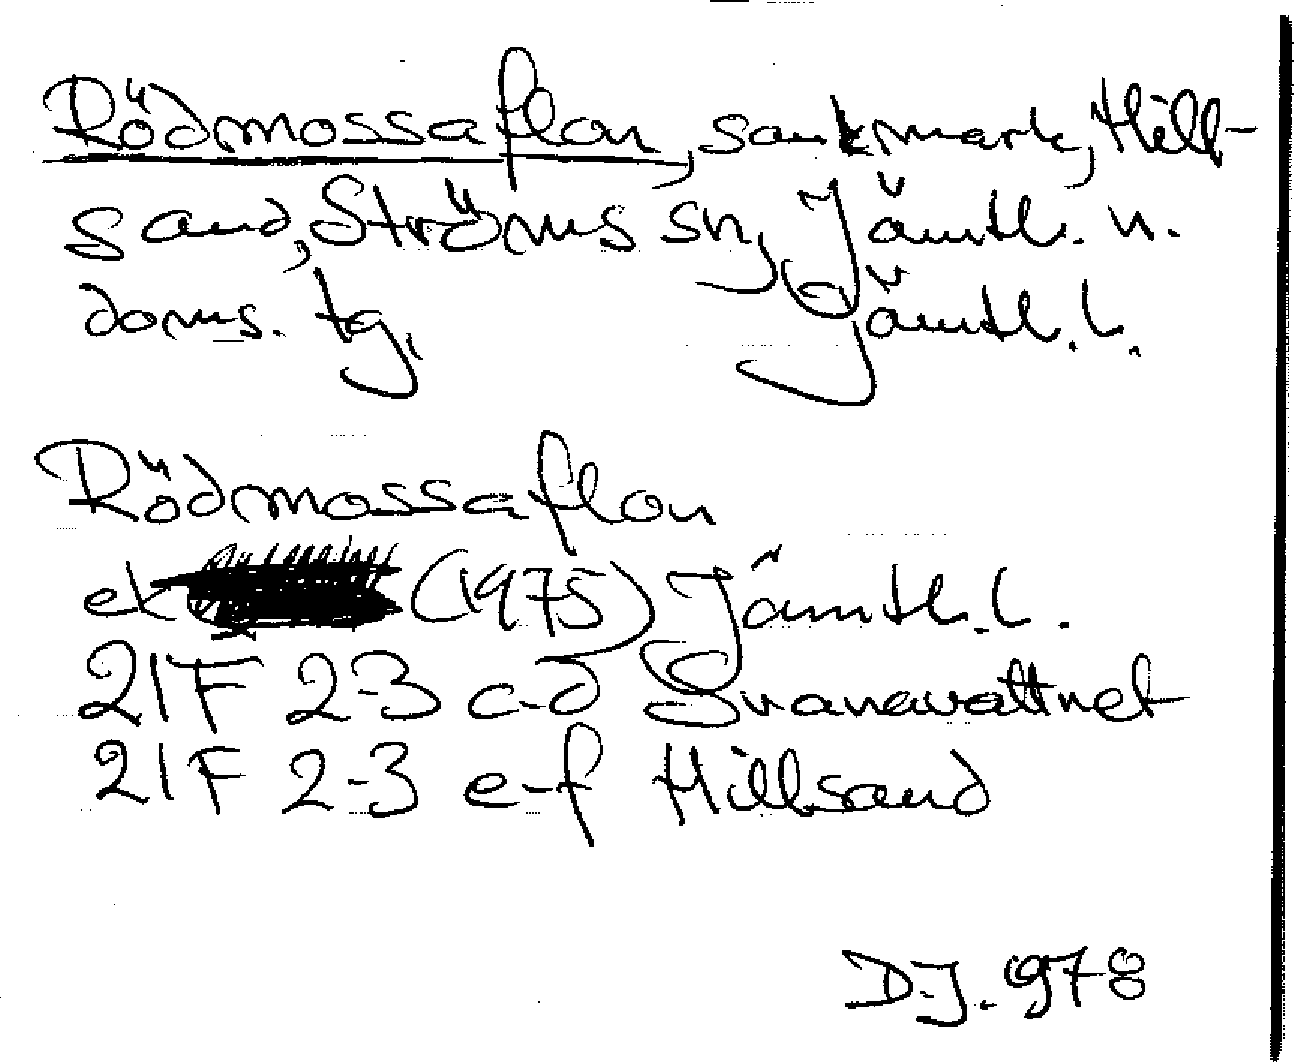 Rödmossaflon, sankmark, Hill-
sand, Ströms sn, Jämtl. n.
doms. tg, Jämtl. l.
Rödmossaflon
ek (1975) Jämtl. l.
21F 2-3 c-d Svanavattnet
21F 2-3 e-f Hillsand
D.J. 978